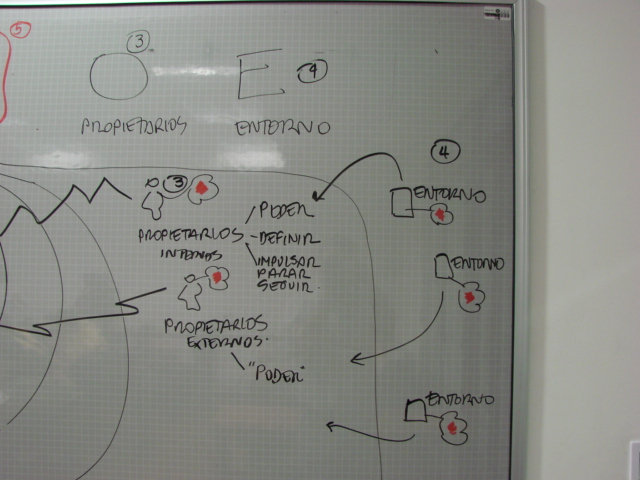 5
3
O
E
4
PROPIETARIOS
ENTORNO
4
3
PROPIETARIOS
INTERNOS
PODER
DEFINIR
IMPULSOR
PARAR
SEGUIR
PROPIETARIOS
EXTERNOS.
"PODER"
ENTORNO
ENTORNO
ENTORNO